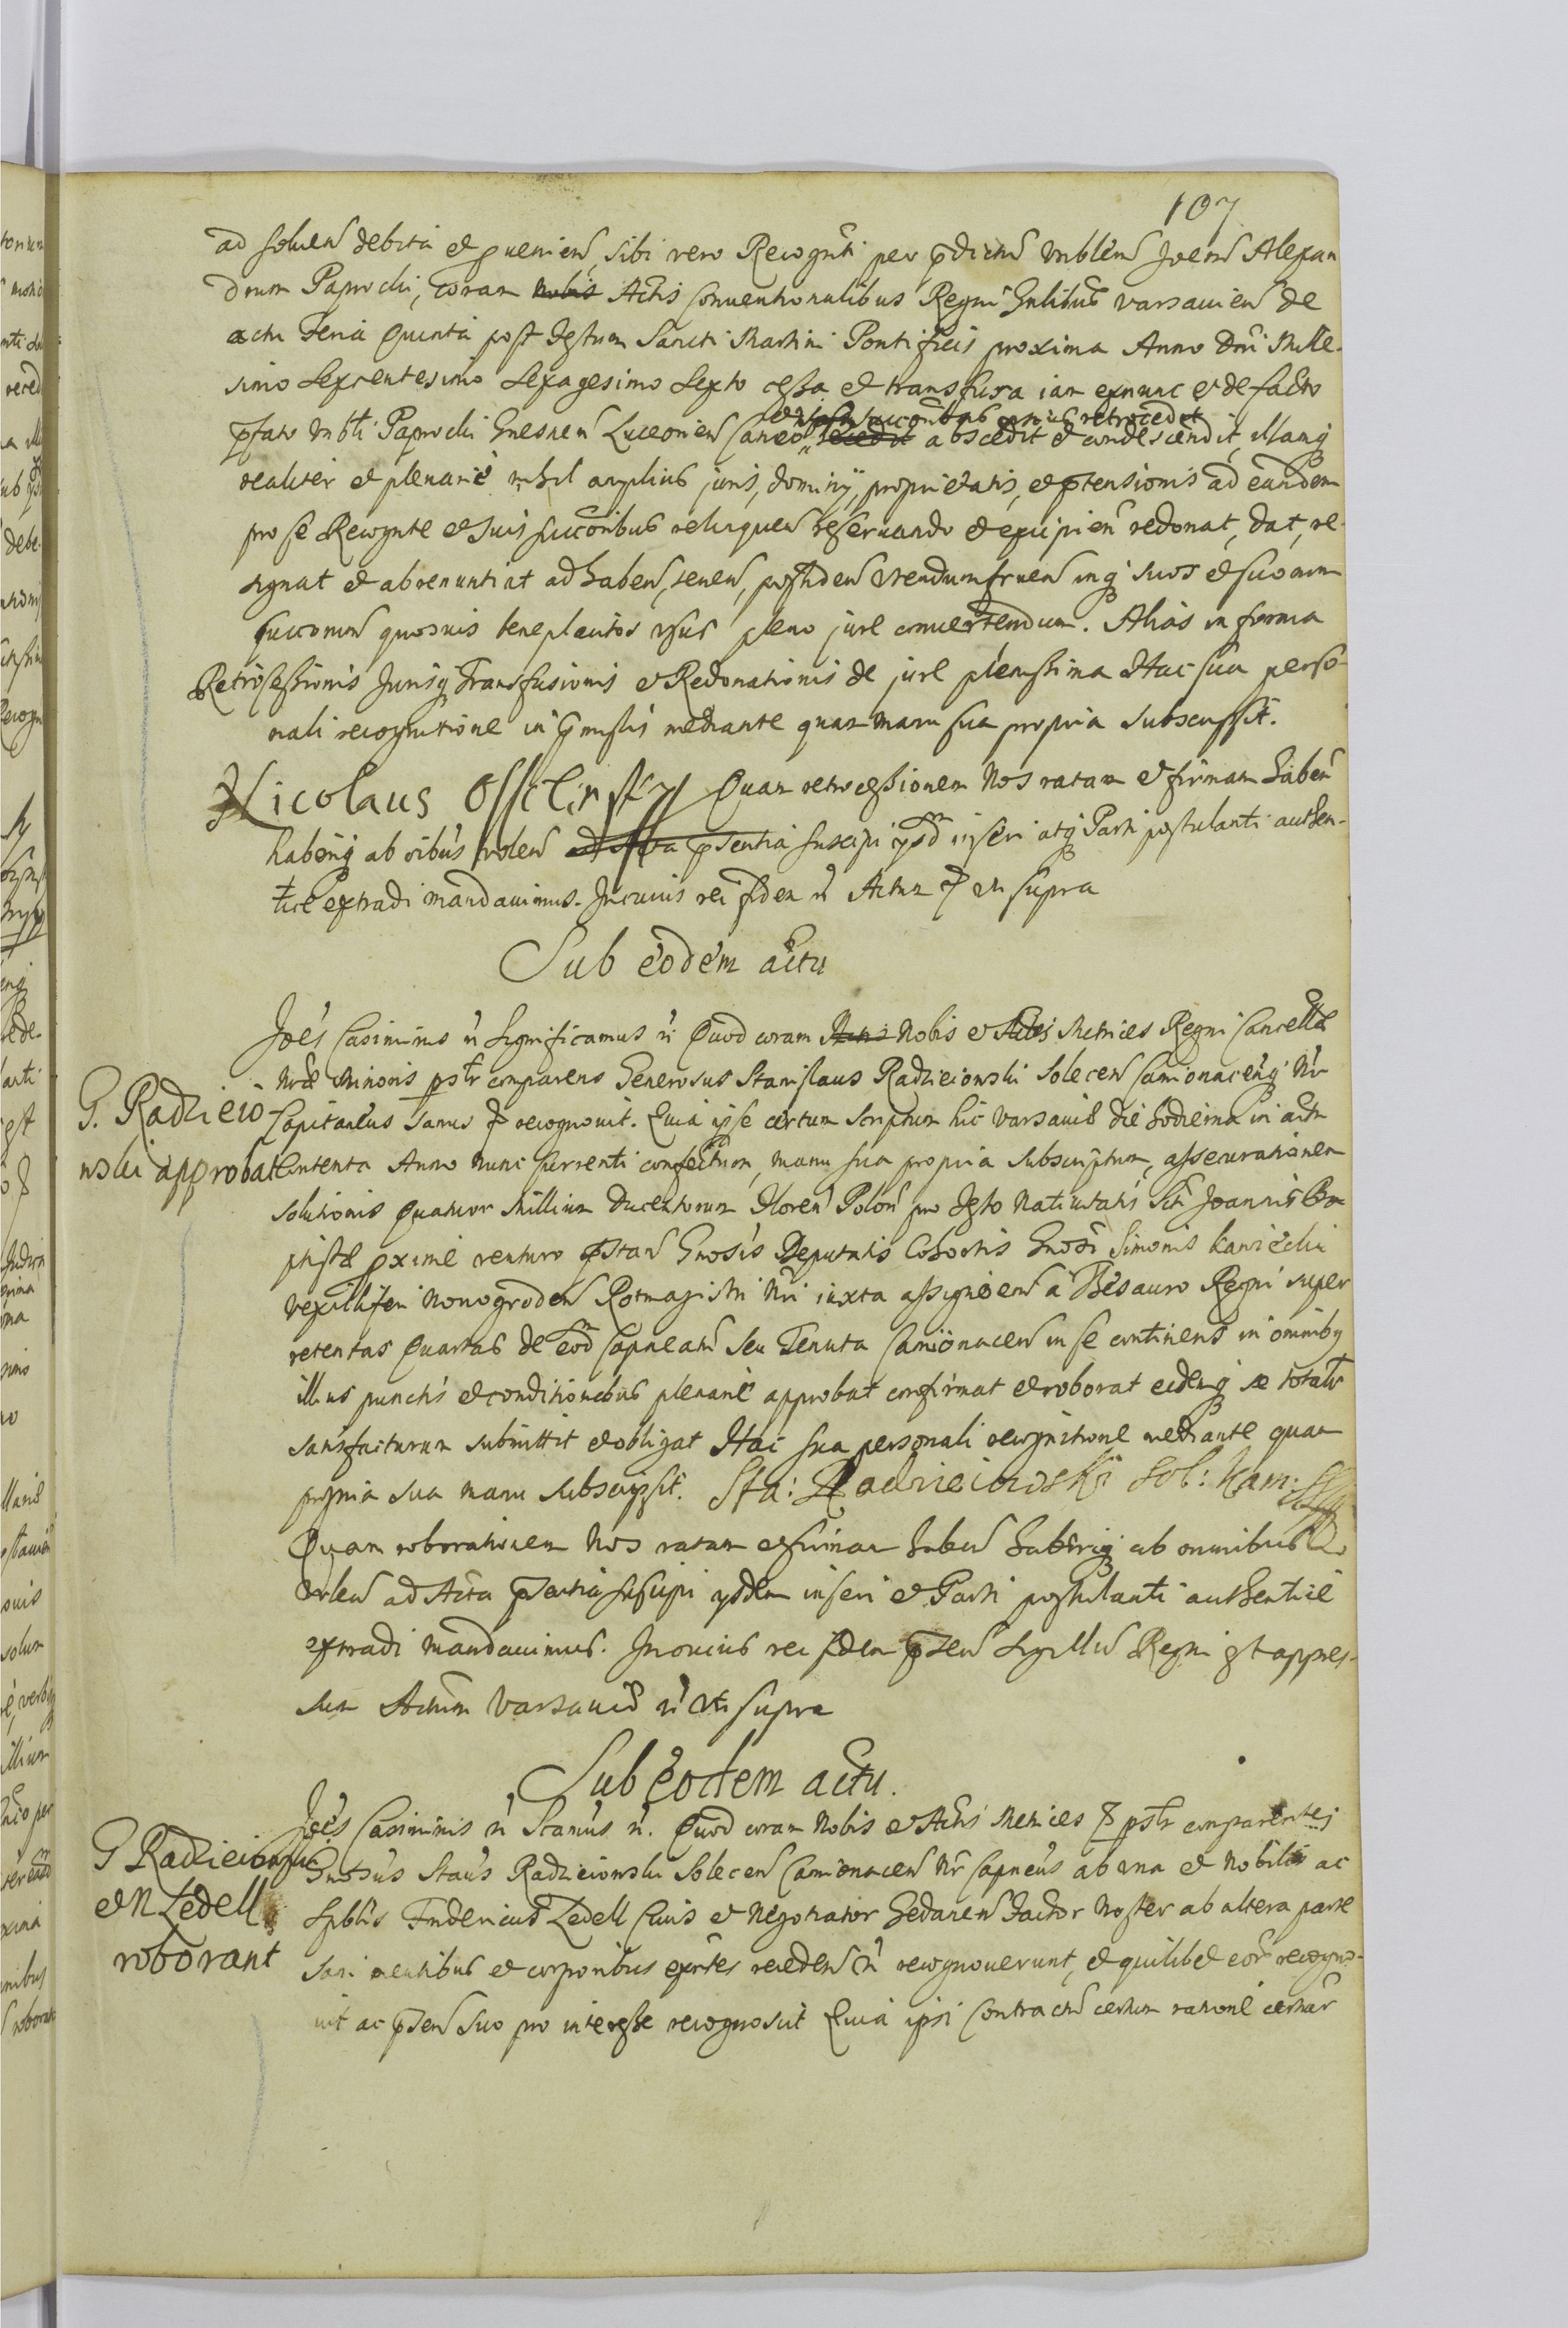 107
ad soluen debita et queniens, sibi vero Recogn̄ti per p̄dictū Vnblem Joem̄ Alexan
drum Paprocki, coram nobis Actis Conuentionalibus Regni Gn̄libus Varsauien̄ de
actu Feria Quinta post Festum Sancti Martini Pontificis proxima Anno Dn̄i Mille-
simo Sexcentesimo Sexagesimo Sexto cessa et transfusa iam exnunc et de facto
et ipsius succoribus omnius retrocedit
p̄fato Vnbli Paprocki Gnesnen̄ Luceorien̄ Canco cedit abscedit et condescendit, illamq
realiter et plenariè nihil amplius juris, dominÿ, proprietatis, et p̄tensionis ad eandem
pro se Recognte et suis succoribus relinquen̄ reseruando et excipien̄ redonat, dat, re-
signat et abrenuntiat ad haben̄, tenen̄, possiden̄ vtendumfruen̄ inq suos et suorum
succorum quosuis beneplacitos vsus pleno jure conuertendum. Alias in forma
Retrocessionis Jurisq Transfusionis et Redonationis de jure plenissima Hac sua perso-
nali recognitione in p̄missis mediante quam manu sua propria subscripsit.
Nicolaus Quam retrocessionem Nos ratam et firmam haben̄
haberiq ab oibus volen̄ ad Acta p̄sentia suscipi ysd inseri atq Parti postulanti authen-
ticè extradi mandauimus. Incuius rei fidem n̄ Actum ut supra
Sub eodem actu
Joēs Casimirus n̄ Significamus n̄ Quod coram Nobis et Actis Metrices Regni Cancellæ
Nræ Minoris p̄str comparens Generosus Stanislaus Radzieiowski Solecen̄ Camionacenq Nr
G. Radzieio- Capitaneus Sanus recognouit. Quia ipse certum scriptum hic Varsauiæ die hodierna in actu
wski approbat Contenta Anno nunc currenti confectum, manu sua propria subscriptum, assecurationem
solutionis Quatuor Millium Ducentorum Floren̄ Polon̄ pro Festo Natiuitatis Sti Joannis Ba
ptistæ pxime venturo p̄stan̄ Gnosis Deputatis Cohortis Gnosi Simonis Kawiecki
vexilliferi Nouogroden̄ Rotmagistri Nri iuxta assignōem̄ à Thesauro Regni super
retentas Quartas de eod Capneatū seu Tenuta Camionacen̄ in se continens in omniby
illius punctis et conditionibus plenariè approbat confirmat et roborat eidemq se totalr
satisfacturum submittit et obligat Hac sua personali recognitione mediante quam
propria sua manu subscripsit. Sta: Radzieiowski Sol: Kam:
Quam roborationem Nos ratam et firmam haben̄ haberiq ab omnibus
volen̄ ad Acta p̄sentia suscipi ysdem inseri et Parti postulanti authenticè
extradi mandauimus. Incuius rei fidem p̄sen̄ Sigillū Regni est appres-
sum Actum Varsauiæ n̄ vti supra
Sub eodem actu.
Joēs Casimirus n̄ Scamus n̄. Quod coram Nobis et Actis Metrices p̄str comparentes
G Radzieiowski Gnosus Staus Radzieiowski Solecen̄ Camionacen̄ Nr Capneus ab vna et Nobilis ac
et N Zedell Spblis Fridericus Zedell Ciuis et Negotiator Gedanen̄ Factor Noster ab altera parte
roborant sani mentibus et corporibus exntes receden̄ n̄ recognouerunt, et quilibet eor recogno-
uit ac p̄sen̄ suo pro interesse recognoscit Quia ipsi Contractū certum ratione certar